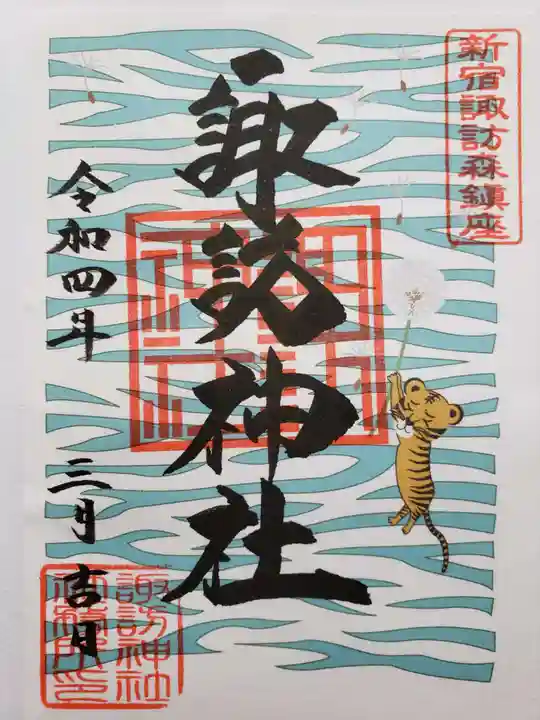 新宿諏訪森鎮座
諏訪神社
令和四年 三月 吉日
諏訪神社